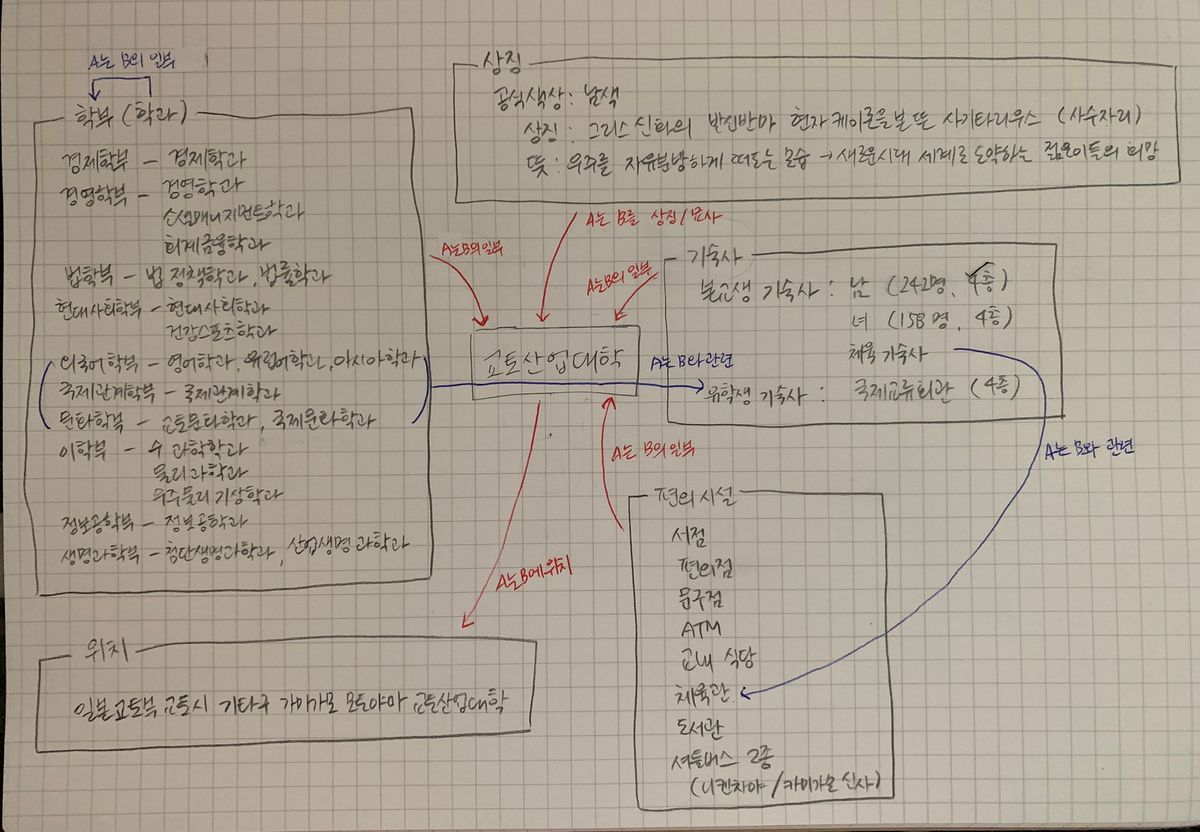 A는 B의 일부
학부 (학과)
경제학부 - 경제학과
경영학부 - 경영학과
소셜매니지먼트학과
회계금융학과
법학부 - 법 정책학과, 법률학과
현대사회학부 - 현대사회학과
건강스포츠학과
외국어학부 - 영어학과, 유럽어학과, 아시아학과
국제관계학부 - 국제관계학과
문화학부 - 교토문화학과, 국제문화학과
이학부 - 수 과학학과
물리과학과
우주물리 기상학과
정보공학부 - 정보공학과
생명과학부 - 첨단생명과학과, 산업생명 과학과
상징
공식색상 : 남색
상징 : 그리스 신화의 반신반마 현자 케이론을 본 뜬 사기타리우스 (사수자리)
뜻 : 우주를 자유분방하게 떠도는 모습 → 새로운시대 세계로 도약하는 젊은이들의 희망
A는 B를 상징/묘사
A는 B의 일부
A는 B의 일부
기숙사
본교생 기숙사 : 남 (242명, 4층)
녀 (158명, 4층)
체육 기숙사
유학생 기숙사 : 국제교류회관 (4층)
교토산업대학
A는 B와 관련
A는 B의 일부
A는 B와 관련
A는 B에 위치
편의 시설
서점
편의점
문구점
ATM
교내 식당
체육관
도서관
셔틀버스 2종
(니켄차야 / 카미가모 신사)
위치
일본 교토부 교토시 기타구 가미가모 모토야마 교토산업대학